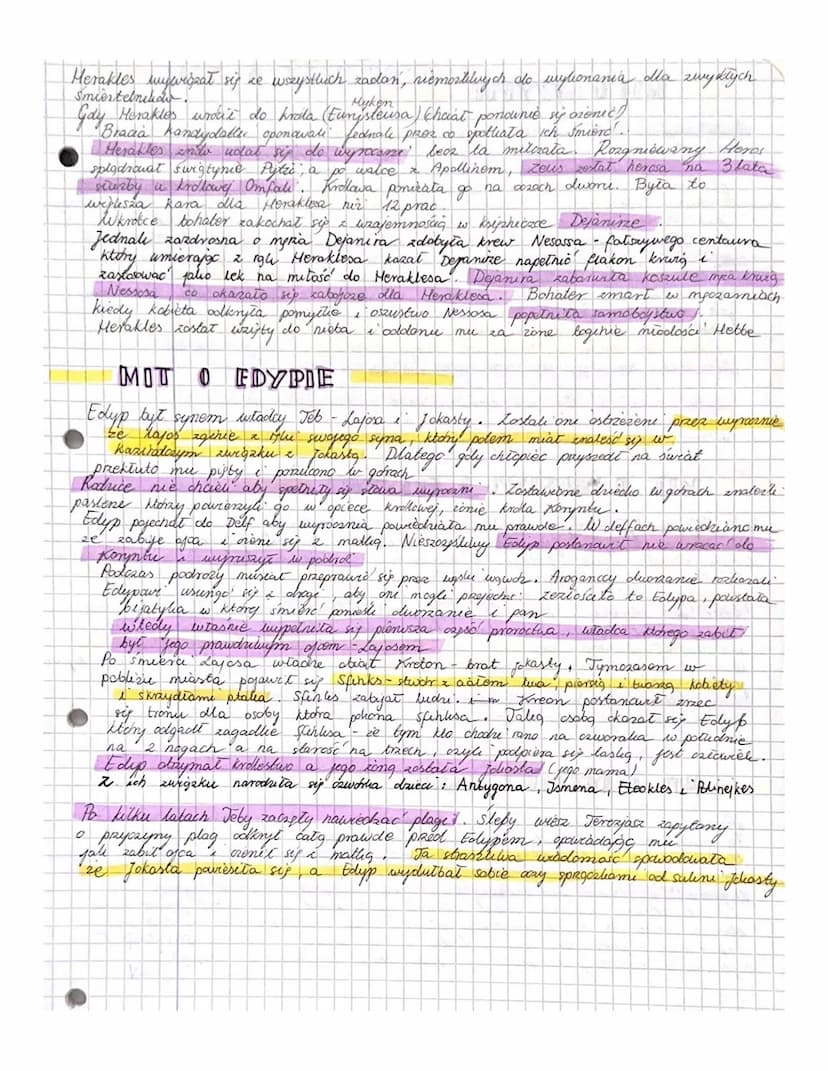 Herakles wywiązał się ze wszystkich zadań, niemożliwych do wykonania dla zwykłych
śmiertelników.
Myken
Gdy Herakles wrócił do króla (Eurysteusa) Chciał ponownie się ożenić!
Bracia kandydatki oponowali jednak przez co spotkała ich śmierć.
Herakles znów udał się do wyroczni lecz ta milczała. Rozgniewany Heros
splądrował świątynie Pytii, a po walce z Apollinem, Zeus zesłał herosa na 3 lata
służby u królowej Omfali. Królowa poniżała go na oczach dworu. Była to
większa kara dla Heraklesa niż 12 prac.
Wkrótce bohater zakochał się z wzajemnością w księżniczce Dejanirze.
Jednak zazdrosna o męża Dejanira zdobyła krew Nesossa - fałszywego centaura
który umierając z rąk Heraklesa kazał Dejanirze napełnić flakon krwią i
zastosować jako lek na miłość do Heraklesa. Dejanira zabarwiła koszule męża krwią
Nessosa co okazało się zabójcze dla Heraklesa. Bohater zmarł w męczarniach
kiedy kobieta odkryła pomyłkę i oszustwo Nessosa popełniła samobójstwo.
Herakles został wzięty do nieba i oddano mu za żonę boginie młodości Hebbe
MIT O EDYPIE
Edyp był synem władcy Teb - Lajosa i Jokasty. Zostali oni ostrzeżeni przez wyrocznie
że Lajos zginie z ręki swojego syna, który potem miał znaleść się w
kazirodczym związku z Jokastą. Dlatego gdy chłopiec przyszedł na świat
przekłuto mu pięty i porzucono w górach
Rodzice nie chcieli aby spełniły się słowa wyroczni. Zostawione dziecko w górach znaleźli
pasterze którzy powierzyli go w opiece królowej, żonie króla Koryntu.
Edyp pojechał do Delf aby wyrocznia powiedziała mu prawde. W delfach powiedziano mu
że zabije ojca i ożeni się z matką. Nieszczęśliwy Edyp postanowił nie wracać do
Koryntu i wyruszył w podróż
Podczas podróży musiał przeprawić się przez wąski wąwóz. Aroganccy dworzanie rozkazali
Edypowi usunąć się z drogi, aby oni mogli przejechać. Zezłościło to Edypa, powstała
bijatyka w której śmierć ponieśli dworzanie i pan
Wtedy właśnie wypełniła się pierwsza część proroctwa, władca którego zabił
był jego prawdziwym ojcem - Lajosem
Po śmierci Lajosa władze objął Kreton - brat Jokasty. Tymczasem w
pobliżu miasta pojawił się Sfinks - stwór z ciałem lwa, piersią i twarzą kobiety
i skrzydłami ptaka. Sfinks zabijał ludzi. Kreon postanowił zrzec
się tronu dla osoby która pokona sfinksa. Taką osobą okazał się Edyp
który odgadł zagadkie Sfinksa - że tym kto chodzi rano na czworaka w południe
na 2 nogach a na starość na trzech, czyli podpiera się laską, jest człowiek.
Edyp otrzymał królestwo a jego żoną została Jokasta (jego mama)
Z ich związku narodziła się czwórka dzieci: Antygona, Ismena, Eteokles i Polinejkes
Po kilku latach Teby zaczęły nawiedzać plagi. Ślepy wieszcz Terezjasz zapytany
o przyczyny plag odkrył całą prawde przed Edypem, opowiadając mu
jak zabił ojca i ożenił się z matką. Ta straszliwa wiadomość spowodowała
że Jokasta powiesiła się, a Edyp wydłubał sobie oczy sprzączkami od sukni Jokasty